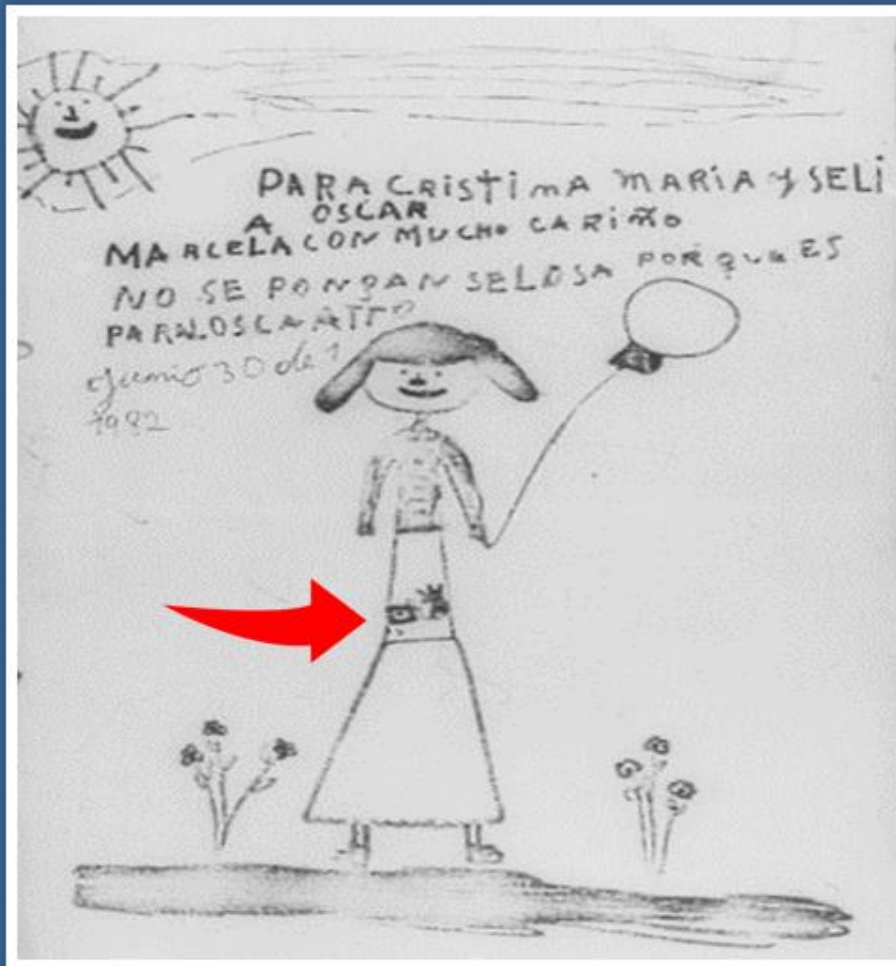 PARA CRISTIMA MARIA Y SELI
A OSCAR
MARCELA CON MUCHO CARIÑO
NO SE PONGAN SELOSA PORQUE ES
Junio 30 de 1
1982